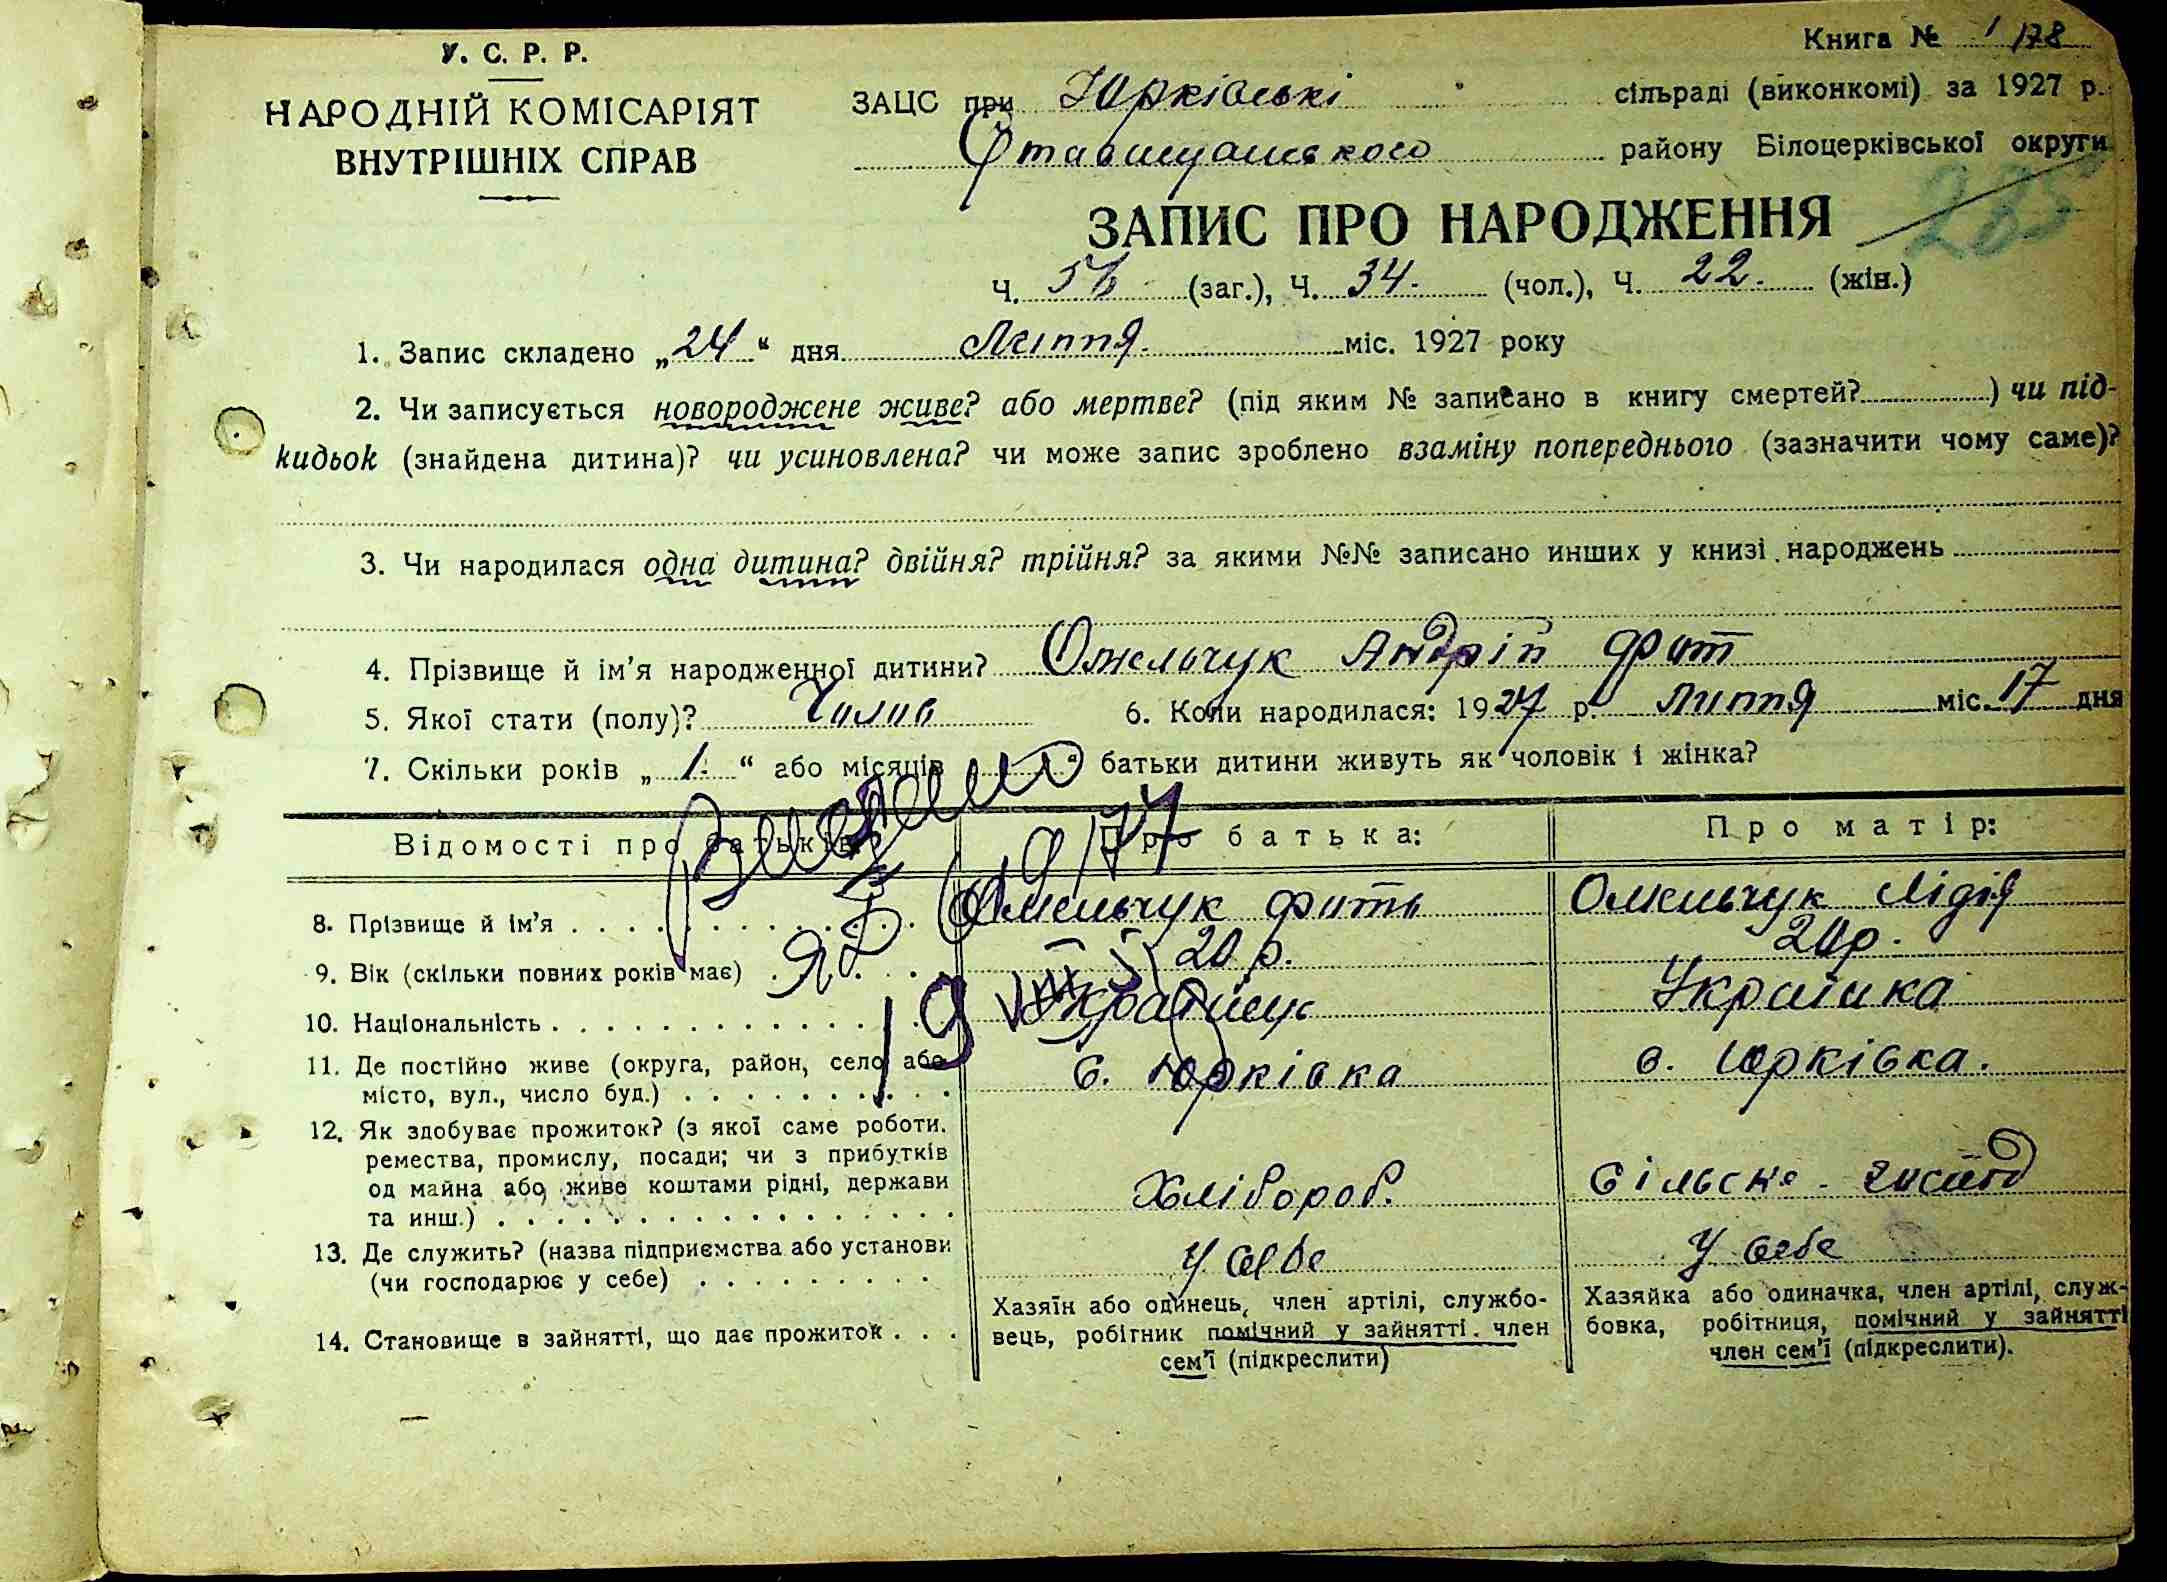 У. С. Р. Р.
НАРОДНІЙ КОМІСАРІЯТ
ВНУТРІШНІХ СПРАВ
Книга № 1 178
ЗАЦС при Юрківські сільраді (виконкомі) за 1927 р.
Ставищанського району Білоцерківської округи
285
ЗАПИС ПРО НАРОДЖЕННЯ
Ч. 56 (заг.), Ч. 34. (чол.), Ч. 22. (жін.)
1. Запис складено „24“ дня Липня. міс. 1927 року
2. Чи записується новороджене живе? або мертве? (під яким № записано в книгу смертей?) чи під-
кидьок (знайдена дитина)? чи усиновлена? чи може запис зроблено взаміну попереднього (зазначити чому саме)?
3. Чи народилася одна дитина? двійня? трійня? за якими №№ записано инших у книзі народжень
4. Прізвище й ім'я народженної дитини? Омельчук Андрій Фот
5. Якої стати (полу)? Чолов 6. Коли народилася: 1927 р. Липня міс. 17 дня
7. Скільки років „1.“ або місяців „ “ батьки дитини живуть як чоловік і жінка?
Відомості про батьків Про батька: Про матір:
8. Прізвище й ім'я Омельчук Фоть Омельчук Лідія
9. Вік (скільки повних років має) 20 р. 20 р.
10. Національність Українець Українка
11. Де постійно живе (округа, район, село або
місто, вул., число буд.) с. Юрківка с. Юрківка.
12. Як здобуває прожиток? (з якої саме роботи.
ремества, промислу, посади; чи з прибутків
од майна або живе коштами рідні, держави
та инш.) Хлібороб. Сільськ. господ
13. Де служить? (назва підприємства або установи
(чи господарює у себе) У себе У себе
14. Становище в зайнятті, що дає прожиток
Хазяїн або одинець, член артілі, службо-
вець, робітник помічний у зайнятті. член
сем'ї (підкреслити)
Хазяйка або одиначка, член артілі, служ-
бовка, робітниця, помічний у зайнятті
член сем'ї (підкреслити).